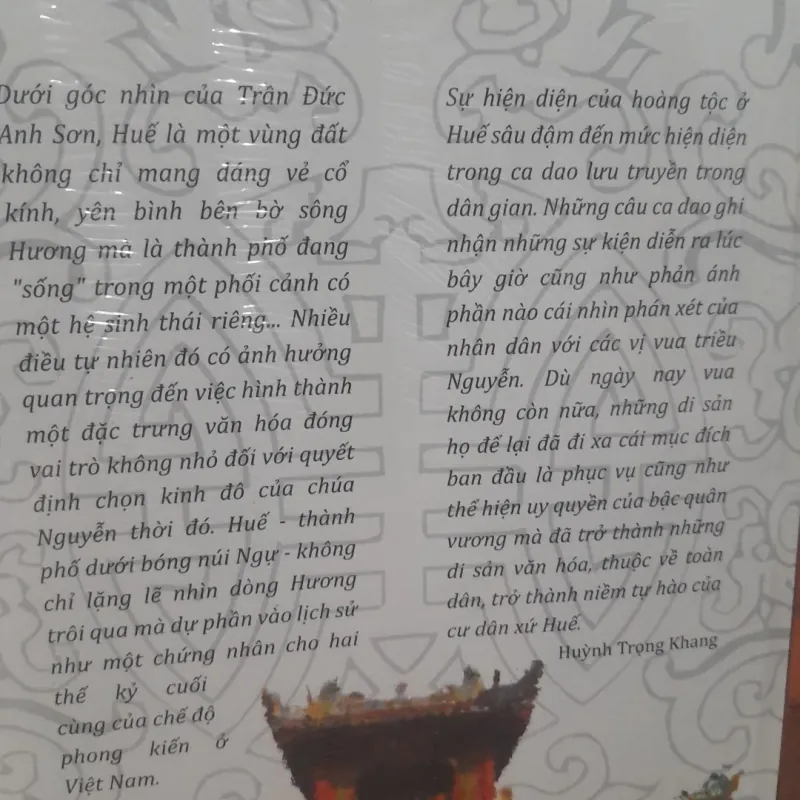 Dưới góc nhìn của Trần Đức
Anh Sơn, Huế là một vùng đất
không chỉ mang dáng vẻ cổ
kính, yên bình bên bờ sông
Hương mà là thành phố đang
"sống" trong một phối cảnh có
một hệ sinh thái riêng... Nhiều
điều tự nhiên đó có ảnh hưởng
quan trọng đến việc hình thành
một đặc trưng văn hóa đóng
vai trò không nhỏ đối với quyết
định chọn kinh đô của chúa
Nguyễn thời đó. Huế - thành
phố dưới bóng núi Ngự - không
chỉ lặng lẽ nhìn dòng Hương
trôi qua mà dự phần vào lịch sử
như một chứng nhân cho hai
thế kỷ cuối
cùng của chế độ
phong kiến ở
Việt Nam.
Sự hiện diện của hoàng tộc ở
Huế sâu đậm đến mức hiện diện
trong ca dao lưu truyền trong
dân gian. Những câu ca dao ghi
nhận những sự kiện diễn ra lúc
bây giờ cũng như phản ánh
phần nào cái nhìn phán xét của
nhân dân với các vị vua triều
Nguyễn. Dù ngày nay vua
không còn nữa, những di sản
họ để lại đã đi xa cái mục đích
ban đầu là phục vụ cũng như
thể hiện uy quyền của bậc quân
vương mà đã trở thành những
di sản văn hóa, thuộc về toàn
dân, trở thành niềm tự hào của
cư dân xứ Huế.
Huỳnh Trọng Khang